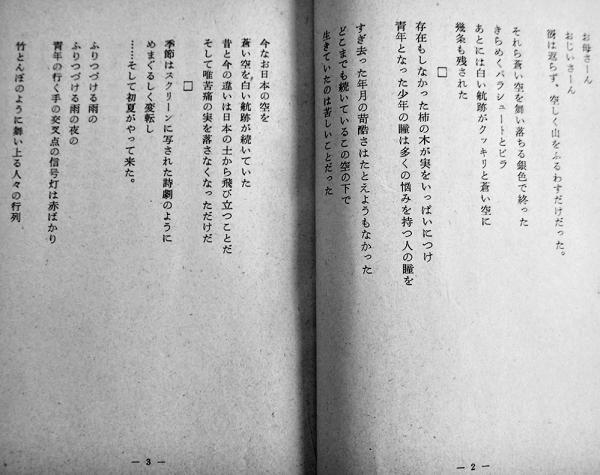 お母さーん
おじいさーん
谺は返らず、空しく山をふるわすだけだった。
それら蒼い空を舞い落ちる銀色で終った
きらめくパラシュートとビラ
あとには白い航跡がクッキリと蒼い空に
幾条も残された
□
存在もしなかった柿の木が実をいっぱいにつけ
青年となった少年の瞳は多くの悩みを持つ人の瞳を
すぎ去った年月の苛酷さはたとえようもなかった
どこまでも続いているこの空の下で
生きていたのは苦しいことだった
— 2 —
今なお日本の空を
蒼い空を白い航跡が続いていた
昔と今の違いは日本の土から飛び立つことだ
そして唯苦痛の実を落さなくなっただけだ
□
季節はスクリーンに写された詩劇のように
めまぐるしく変転し
……そして初夏がやって来た。
ふりつづける雨の
ふりつづける雨の夜の
青年の行く手の交叉点の信号灯は赤ばかり
竹とんぼのように舞い上る人々の行列
— 3 —